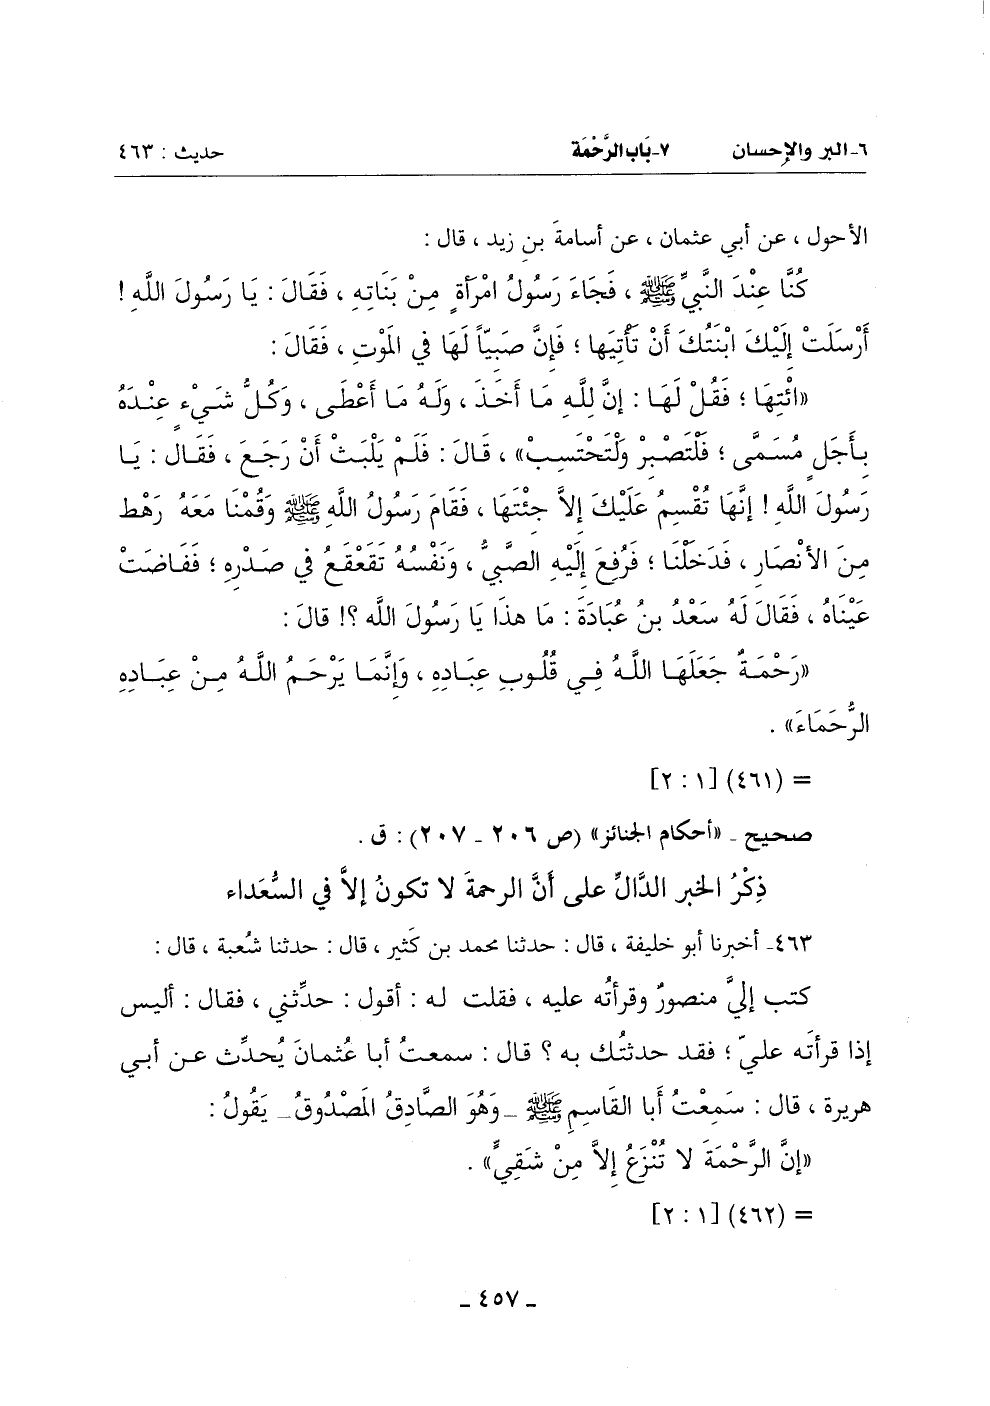 ٦ـ البر والإحسان ٧ـ بَاب الرَّحْمَة حديث : ٤٦٣
الأحول ، عن أبي عثمان ، عن أسامةَ بنِ زيد ، قال :
كُنَّا عِنْدَ النَّبِيِّ ﷺ ، فَجَاءَ رَسُولُ امْرَأةٍ مِنْ بَنَاتِهِ ، فَقَالَ : يَا رَسُولَ اللَّهِ !
أَرْسَلَتْ إِلَيْكَ ابْنَتُكَ أَنْ تَأْتِيَها ؛ فَإِنَّ صَبِيّاً لَهَا فِي المَوْتِ ، فَقَالَ :
«ائْتِهَا ؛ فَقُلْ لَهَا : إنَّ لِلَّهِ مَا أَخَذَ ، وَلَهُ مَا أَعْطَى ، وَكُلُّ شَيْءٍ عِنْدَهُ
بِأَجَلٍ مُسَمَّى ؛ فَلْتَصْبِرْ وَلْتَحْتَسِبْ» ، قَالَ : فَلَمْ يَلْبَثْ أَنْ رَجَعَ ، فَقَال : يَا
رَسُولَ اللَّهِ ! إِنَّهَا تُقْسِمُ عَلَيْكَ إِلاَّ جِئْتَهَا ، فَقَامَ رَسُولُ اللَّهِ ﷺ وَقُمْنَا مَعَهُ رَهْط
مِنَ الأنْصَارِ ، فَدَخَلْنَا ؛ فَرُفِعَ إِلَيْهِ الصَّبِيُّ ، وَنَفْسُهُ تَقَعْقَعُ فِي صَدْرِهِ ؛ فَفَاضَتْ
عَيْنَاهُ ، فَقَالَ لَهُ سَعْدُ بنُ عُبَادَةَ : مَا هذَا يَا رَسُولَ اللَّه ؟! قالَ :
«رَحْمَةٌ جَعَلَهَا اللَّهُ فِي قُلُوبِ عِبَادِهِ ، وَإِنَّمَا يَرْحَمُ اللَّهُ مِنْ عِبَادِهِ
الرُّحَمَاءَ» .
= (٤٦١) [٢ : ١]
صحيح ـ «أحكام الجنائز» (ص ٢٠٦ ـ ٢٠٧) : ق .
ذِكْرُ الخبر الدَّالِّ على أَنَّ الرحمةَ لا تكونُ إلاَّ في السُّعَداء
٤٦٣ـ أخبرنا أبو خليفة ، قال : حدثنا محمد بن كَثير ، قال : حدثنا شُعبة ، قال :
كتب إليَّ منصورٌ وقرأتُه عليه ، فقلت له : أقول : حدِّثني ، فقال : أليس
إذا قرأتَه عليّ ؛ فقد حدثتُك به ؟ قال : سمعتُ أبا عُثمانَ يُحدِّث عن أبي
هريرة ، قال : سَمِعْتُ أَبا القَاسِمِ ﷺ ـ وَهُوَ الصَّادِقُ المَصْدُوقُ ـ يَقُولُ :
«إنَّ الرَّحْمَةَ لا تُنْزَعُ إلاَّ مِنْ شَقِيٍّ» .
= (٤٦٢) [٢ : ١]
ـ ٤٥٧ ـ